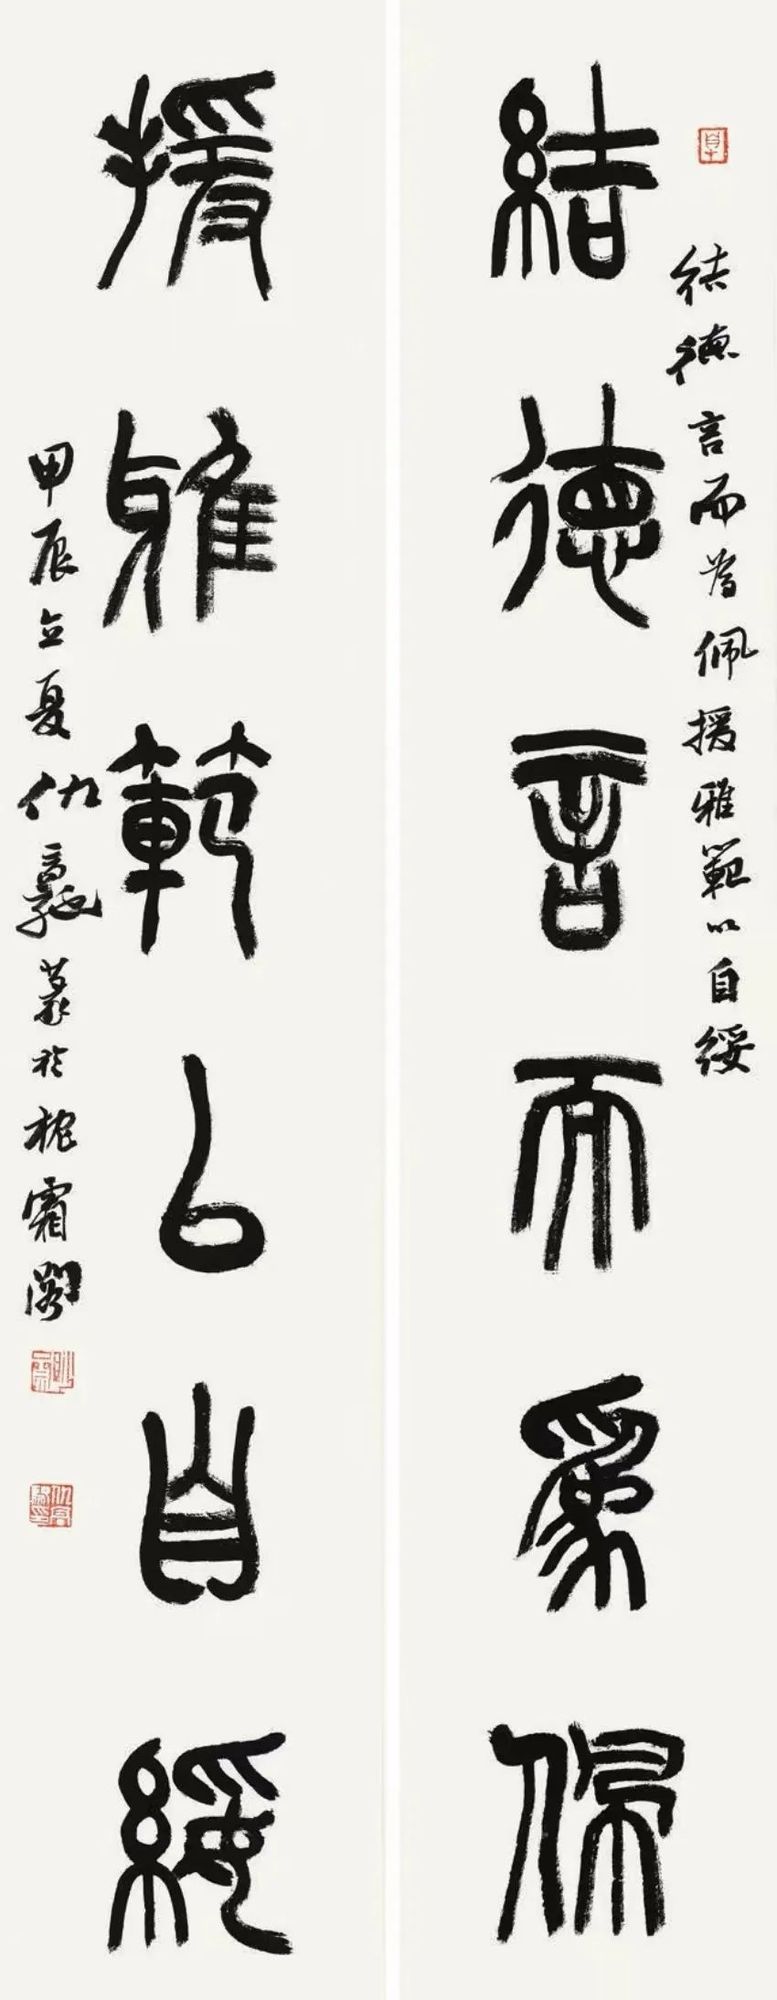 結德言而為佩
结德言而为佩援雅範以自綏
援雅範以自綏
甲辰立夏仇高驰篆於槐霜阁